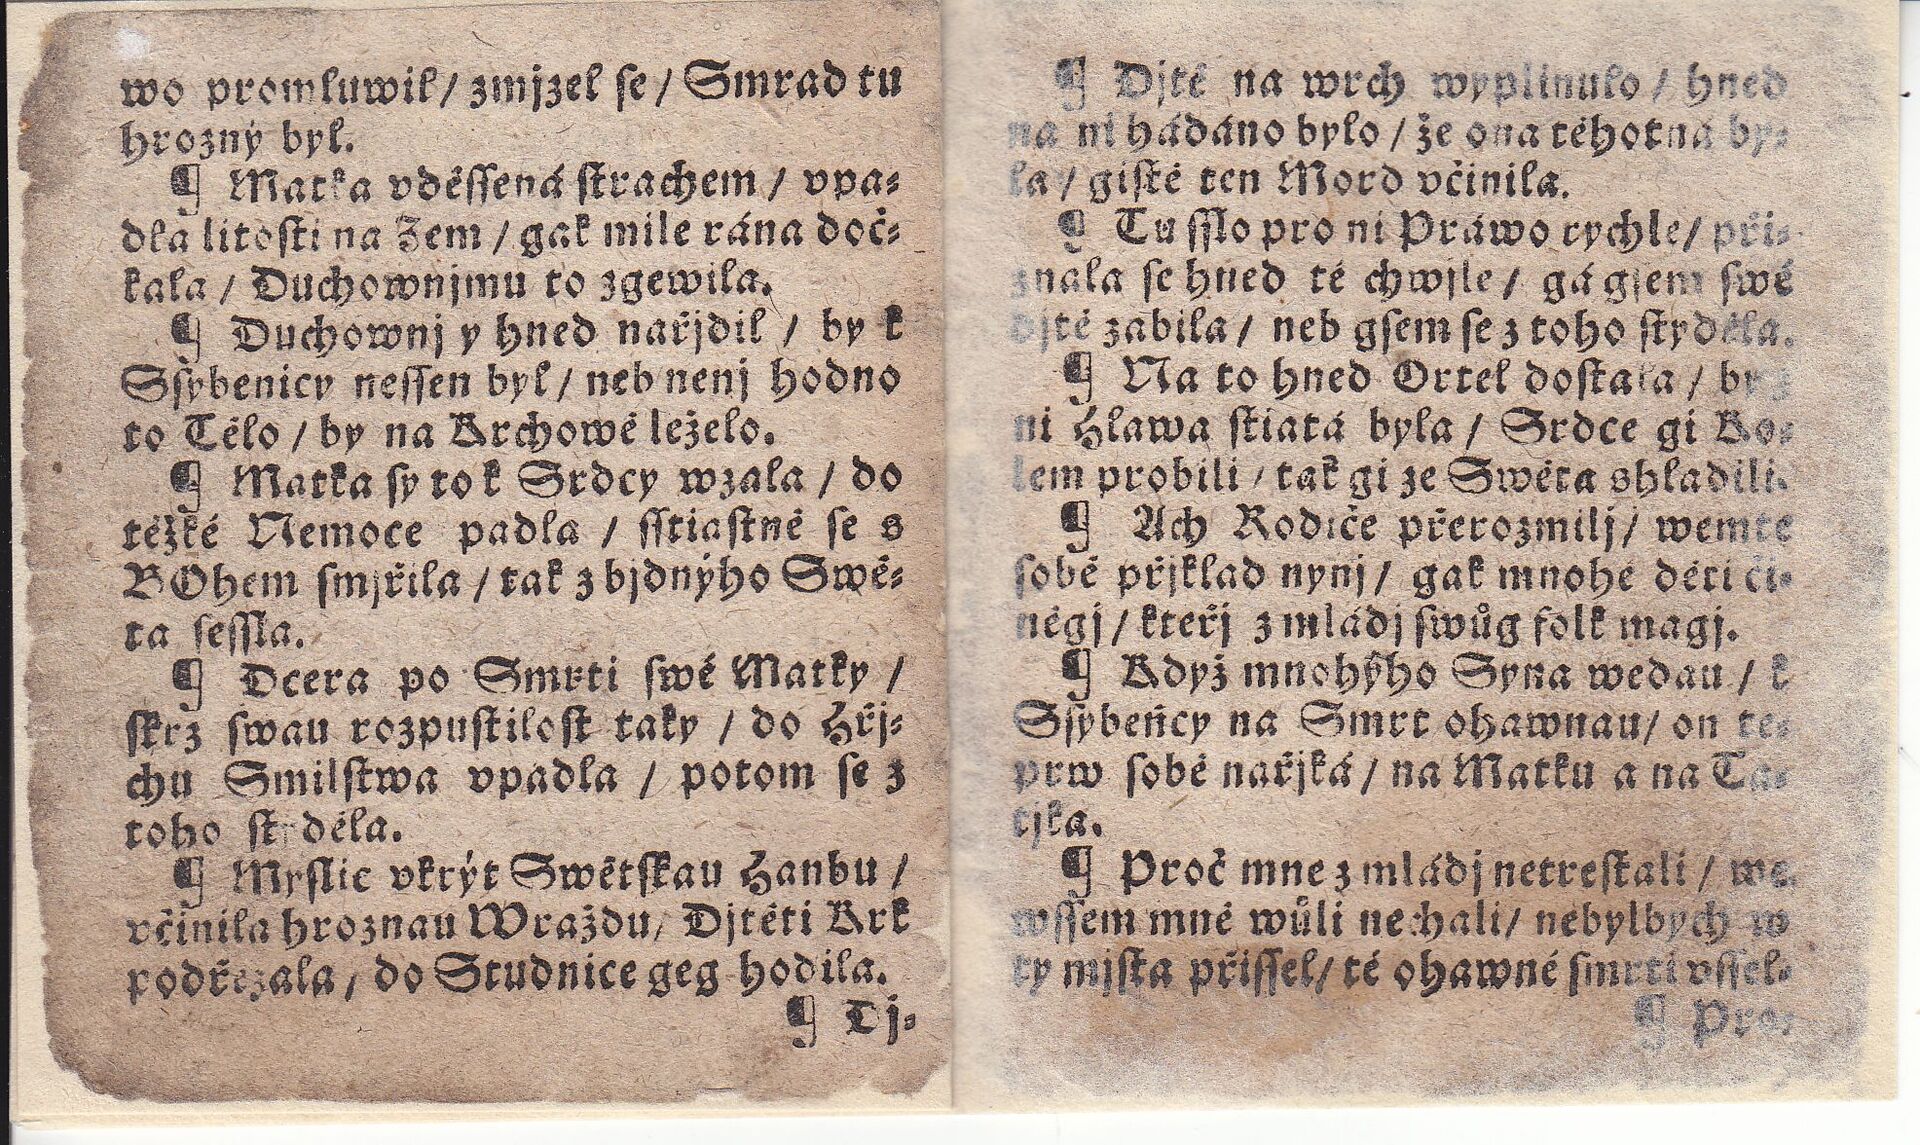 wo promluwil / zmjzel se / Smrad tu
hrozný byl.
¶ Matka vděssená strachem / vpa-
dla litosti na Zem / gak mile rána doč-
kala / Duchownjmu to zgewila.
¶ Duchownj y hned nařjdil / by k
Ssybenicy nessen byl / neb nenj hodno
to Tělo / by na Krchowě leželo.
¶ Matka sy to k Srdcy wzala / do
těžké Nemoce padla / sstiastně se s
BOhem smjřila / tak z bjdnýho Swě-
ta sessla.
¶ Dcera po Smrti swé Matky /
skrz swau rozpustilost taky / do Hřj-
chu Smilstwa vpadla / potom se z
toho st děla.
¶ Myslic vkrýt Swětskau Hanbu /
včinila hroznau Wraždu / Djtěti Krk
podřezala / do Studnice geg hodila.
¶ Dj-
¶ Djtě na wrch wyplinulo / hned
na ni hádáno bylo / že ona těhotná by-
la / gistě ten Mord včinila.
¶ Tu sslo pro ni Práwo rychle / při-
znala se hned té chwjle / gá gsem swé
djtě zabila / neb gsem se z toho styděla.
¶ Na to hned Ortel dostala / by z
ni Hlawa stiatá byla / Srdce gi Ko-
lem probili / tak gi ze Swěta shladili.
¶ Ach Rodiče přerozmilj / wemte
sobě přjklad nynj / gak mnohé děti či-
něgj / kteřj z mládj swůg folk magj.
¶ Když mnohýho Syna wedau / k
Ssybeňcy na Smrt ohawnau / on te-
prw sobě nařjká / na Matku a na Ta-
tjka.
¶ Proč mne z mládj netrestali / we
wssem mné wůli nechali / nebylbych w
ty mjsta přissel / té ohawné smrti vssel-
¶ Pro-